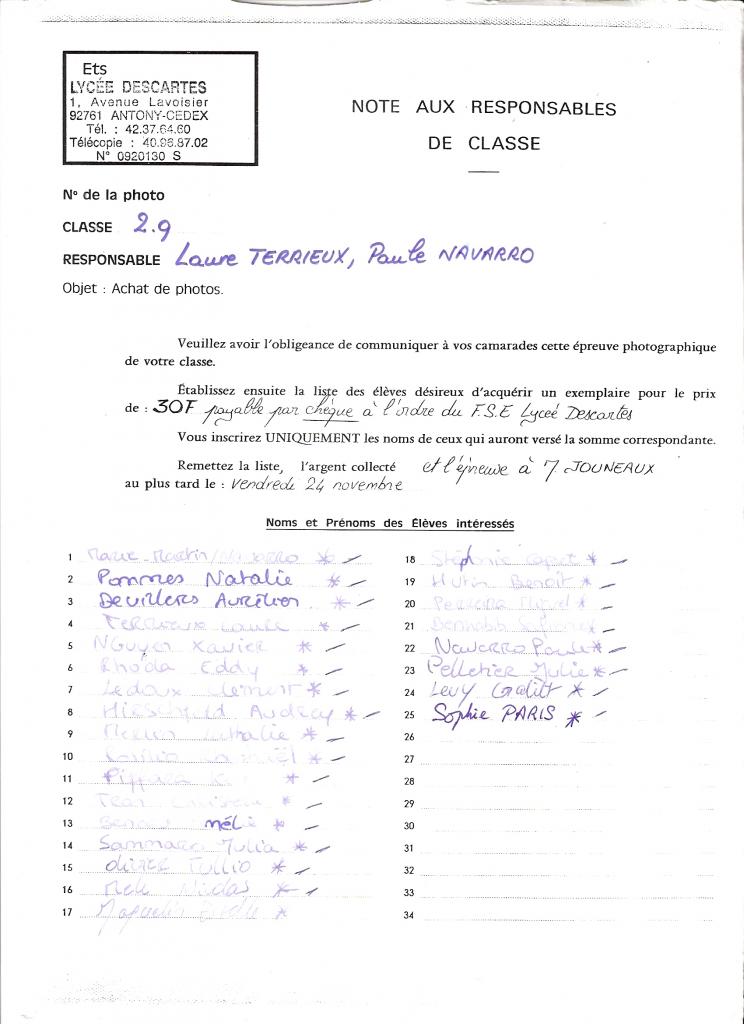 Ets
LYCÉE DESCARTES
1, Avenue Lavoisier
92761 ANTONY-CEDEX
Tél. : 42.37.64.60
Télécopie : 40.96.87.02
N° 0920130 S
NOTE AUX RESPONSABLES
DE CLASSE
N° de la photo
CLASSE 2.9
RESPONSABLE Laure TERRIEUX, Paule NAVARRO
Objet : Achat de photos.
Veuillez avoir l'obligeance de communiquer à vos camarades cette épreuve photographique
de votre classe.
Établissez ensuite la liste des élèves désireux d'acquérir un exemplaire pour le prix
de : 30F payable par chèque à l'ordre du F.S.E Lyceé Descartes
Vous inscrirez UNIQUEMENT les noms de ceux qui auront versé la somme correspondante.
Remettez la liste, l'argent collecté et l'épreuve à 7 JOUNEAUX
au plus tard le : vendredi 24 novembre
Noms et Prénoms des Élèves intéressés
1
2 Pommes Natalie *
3 Devillers Aurélien *
4 Terrieux Laure *
5 Nguyen Xavier *
6 Rhoda Eddy *
7 Ledoux Clément *
8 Audrey *
9 Nathalie *
10
11 *
12 *
13 *
14 Sammaro Julia *
15 Tullio *
16 *
17 *
18 Stéphanie *
19 Hutin Benoit *
20 *
21 *
22 Navarro Paule *
23 Pelletier Julie *
24 Levy Galitt *
25 Sophie PARIS *
26
27
28
29
30
31
32
33
34